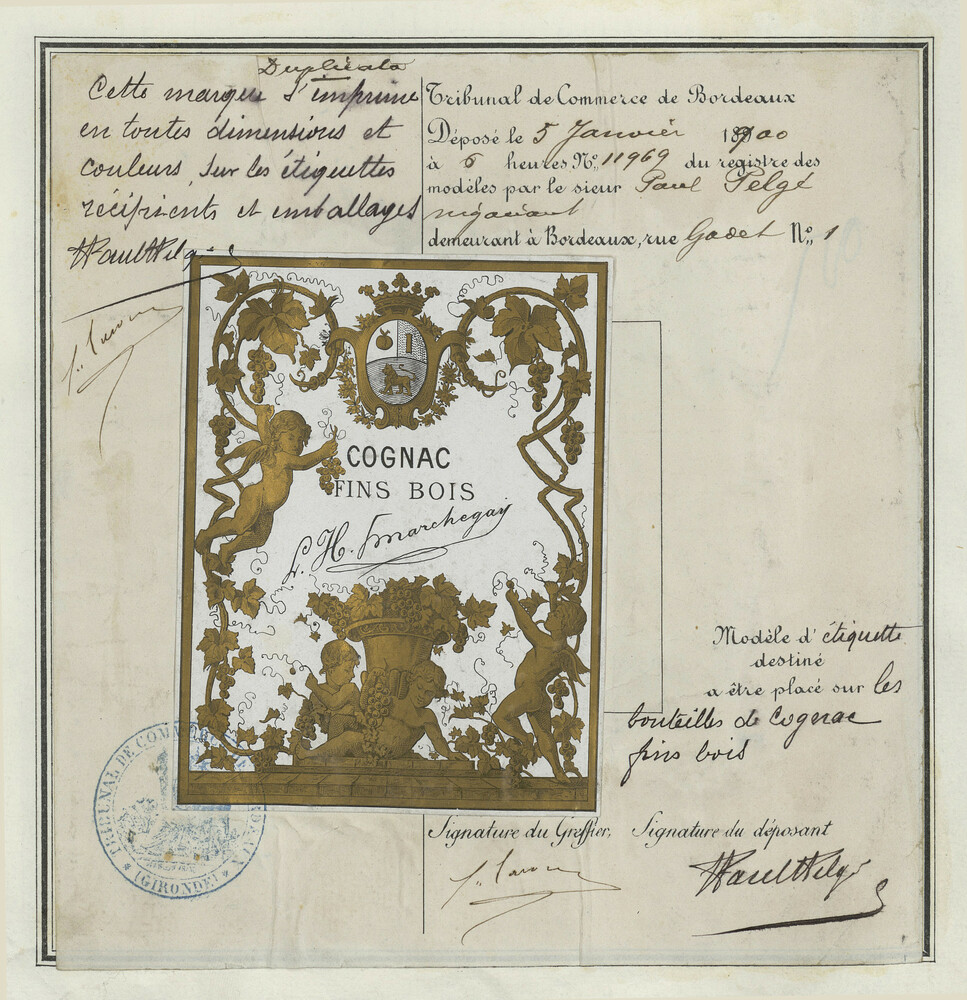 Duplicata
Cette marque s'imprime
en toutes dimensions et
couleurs, sur les étiquettes
récipients et emballages
Tribunal de Commerce de Bordeaux
Déposé le 5 Janvier 1900
à 5 heures No. 11969 du registre des
modèles par le sieur Paul Pelgé
négociant
demeurant à Bordeaux, rue Godet No. 1
COGNAC
FINS BOIS
L. H. Marchegay
Modèle d'étiquette
destiné
a être placé sur les
bouteilles de Cognac
fins bois
TRIBUNAL DE COMMERCE
(GIRONDE)
Signature du Greffier, Signature du déposant